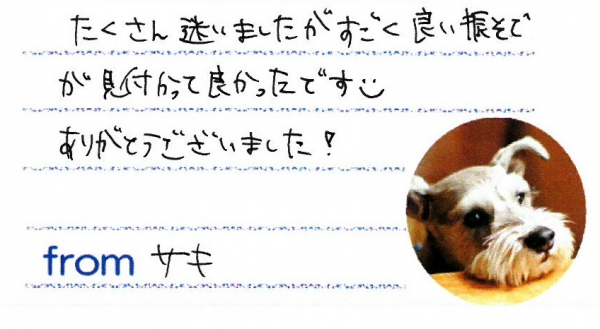 たくさん迷いましたがすごく良い振そで
が見付かって良かったです
ありがとうございました!
from サキ